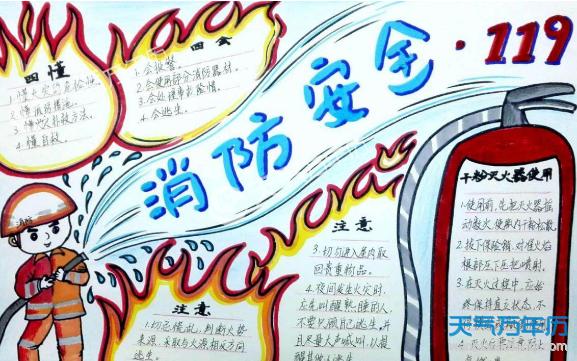 消防安全·119
四懂
3.懂灭火扑救方法.
4.懂自救.
四会
1.会报警.
2.会使用部分消防器材.
4.会逃生.
消防
注意
1.切忌慌乱,判断火势
来源,采取与火源相反方向
逃生.
注意
3.切勿进入屋内取
回贵重物品.
4.夜间发生火灾时,
应先叫醒熟睡的人,
不要只顾自己逃生,并
且尽量大声喊叫,以提
醒其他人逃生.
干粉灭火器使用
1.使用前,先把灭火器摇
动数次,使瓶内干粉松散.
2.拔下保险销,对准火焰
根部压下压把喷射.
3.在灭火过程中,应始
终保持直立状态,不
天气万年历